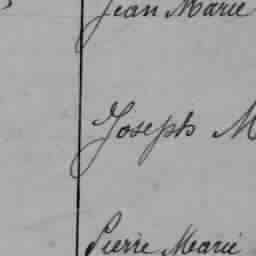 Jean Marie
Joseph M
Pierre Marie